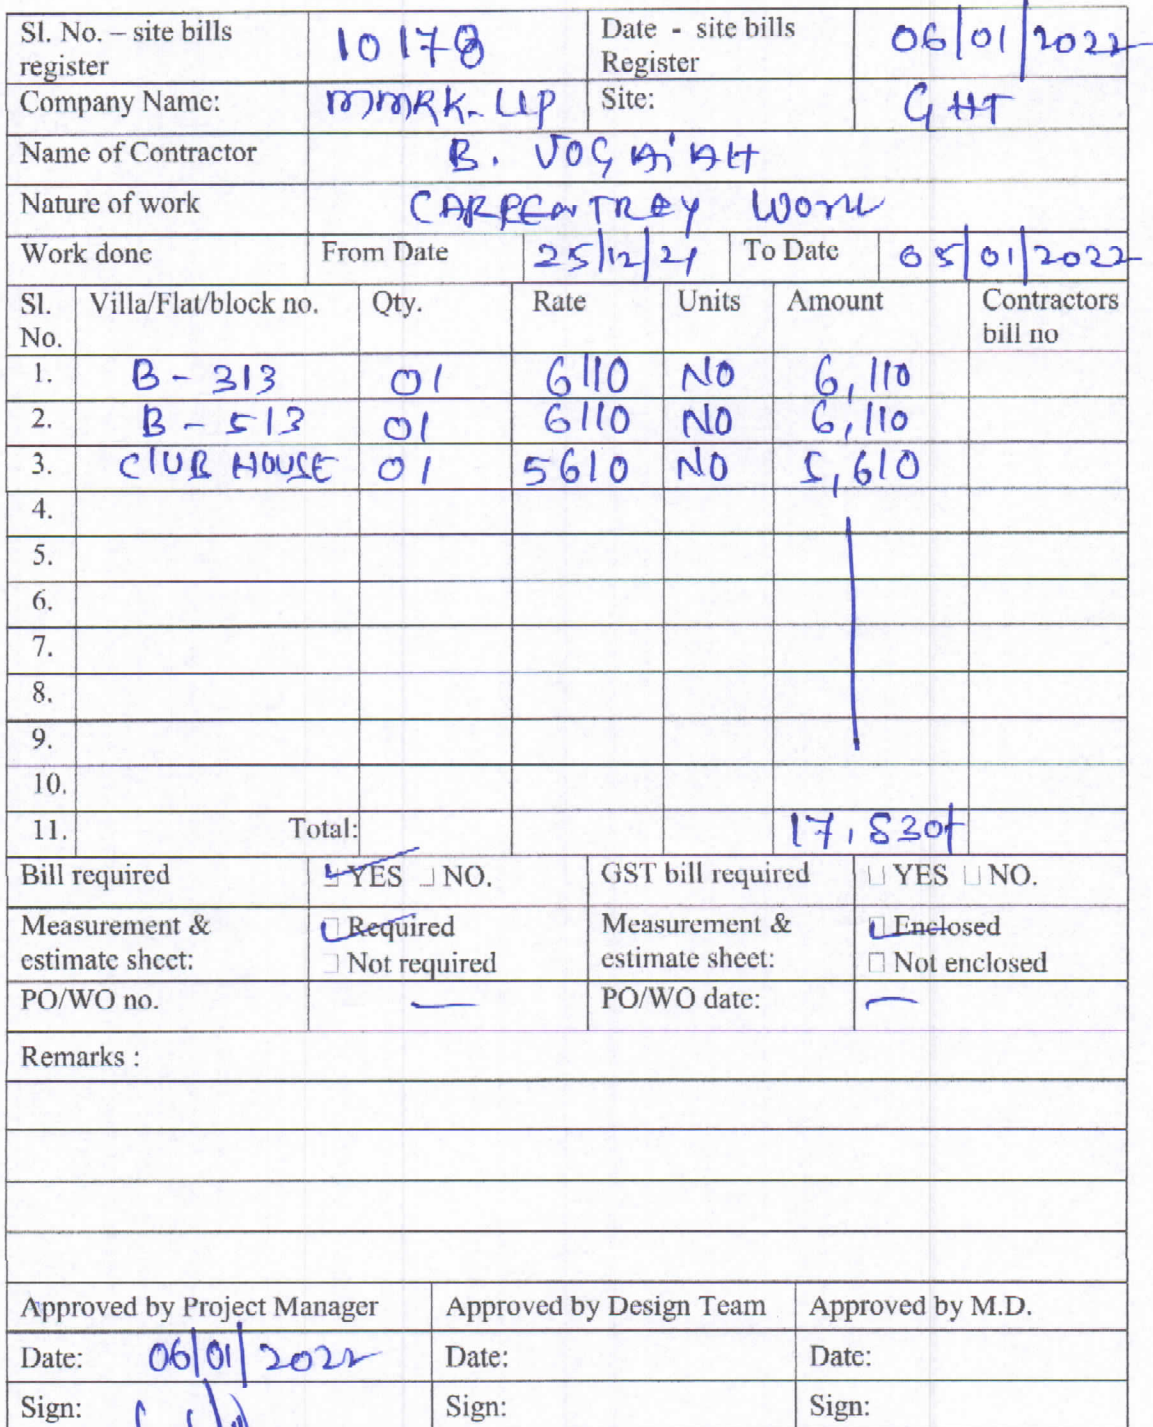 Sl. No. – site bills register 10178 Date - site bills Register 06/01/2022
Company Name: MMRK-LLP Site: GHT
Name of Contractor B. VOGAIAH
Nature of work CARPENTREY WORK
Work done From Date 25/12/21 To Date 05/01/2022
Sl. No. Villa/Flat/block no. Qty. Rate Units Amount Contractors bill no
1. B - 313 01 6110 NO 6,110
2. B - 513 01 6110 NO 6,110
3. CLUB HOUSE 01 5610 NO 5,610
4.
5.
6.
7.
8.
9.
10.
11. Total: 17,830/-
Bill required YES NO. GST bill required YES NO.
Measurement & estimate sheet: Required Not required Measurement & estimate sheet: Enclosed Not enclosed
PO/WO no. — PO/WO date: —
Remarks :
Approved by Project Manager Approved by Design Team Approved by M.D.
Date: 06/01/2022 Date: Date:
Sign: Sign: Sign: